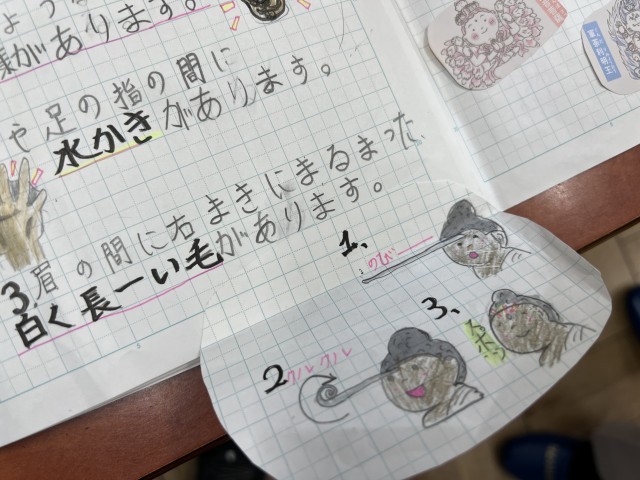 様があります。
や足の指の間に
水かきがあります。
3 眉の間に右まきにまるまった
白く長ーい毛があります。
1、
のびー
2 クルクル
3、